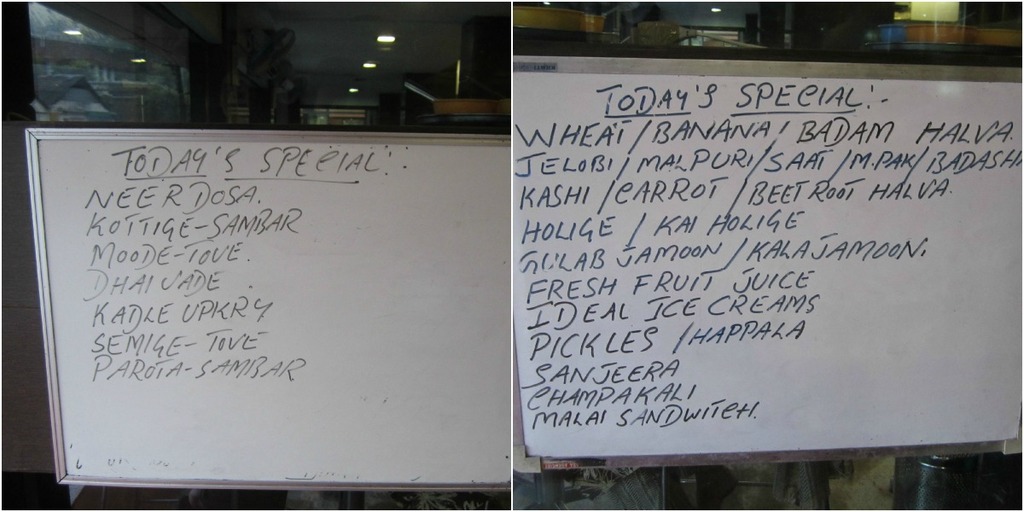 TODAY'S SPECIAL:-
NEER DOSA.
KOTTIGE-SAMBAR
MOODE-TOVE.
DHAI VADE.
KADLE UPKRY
SEMIGE-TOVE
PAROTA-SAMBAR
TODAY'S SPECIAL:-
WHEAT/BANANA/BADAM HALVA.
JELOBI/MALPURI/SAAT/M.PAK/BADASHA
KASHI/CARROT/BEETROOT HALVA.
HOLIGE / KAI HOLIGE
GULAB JAMOON/KALAJAMOON.
FRESH FRUIT JUICE
IDEAL ICE CREAMS
PICKLES /HAPPALA
SANJEERA
CHAMPAKALI
MALAI SANDWITCH.